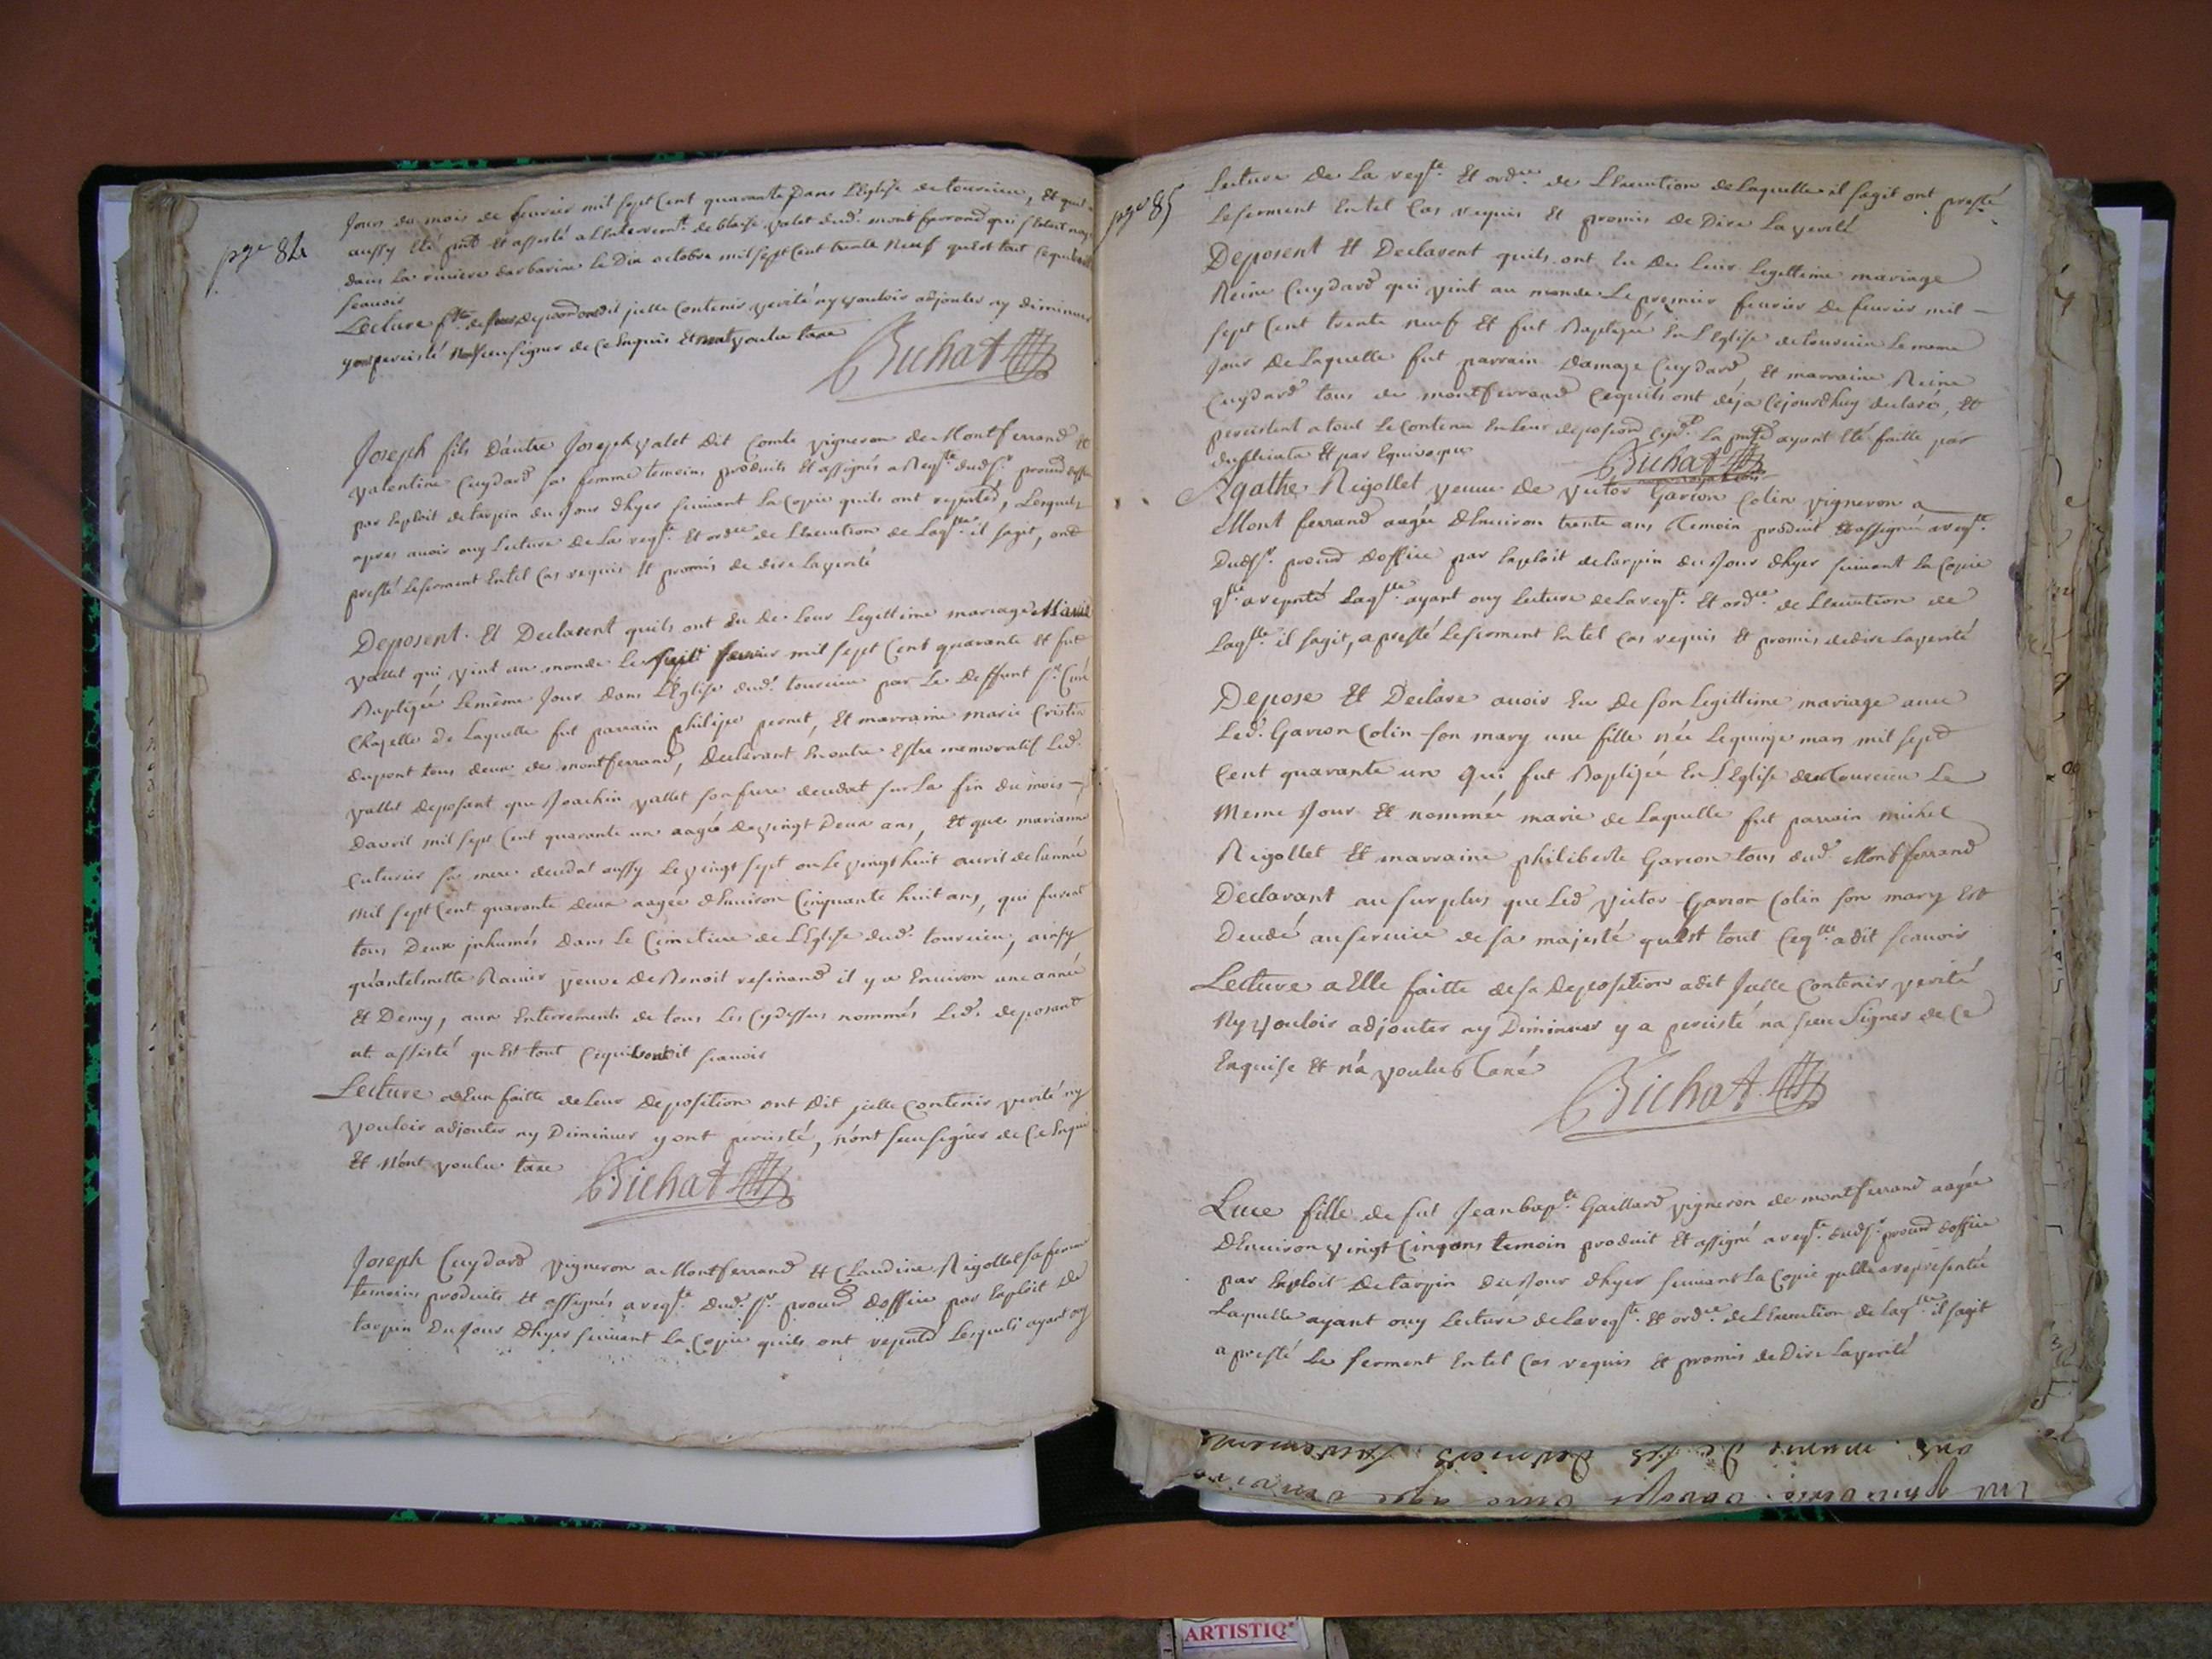 page 84
jours du mois de feurier mil sept Cent quarante Dans L'Eglise de tourcieu, Et quil
aussy Eté pnt Et assisté a L'enterremt. de blaise valet dud. montferrand qui s'etoit noyé
dans La riuiere darbarine le Dix octobre mil sept Cent trente Neuf qu'Est tout Cequil
scauoir
Lecture fte. de deposition dit jcelle Contenir verité ny vouloir adjouter ny diminuer
y ont percisté seu signer de Ce Enquis Et n'ont voulu taxe
Bichat
Joseph fils D'autre Joseph valet Dit Comte vigneron de Montferrand &
valentine Cuydard sa femme temoins produits Et assignés a Reqte. dud Sr. procur d'office
par Exploit de tarpin du Jour d'hyer suiuant La Copie quils ont repnted, Lesquels
apres auoir ouy Lecture de La reqte. Et ordce. de L'Execution de Laqlle. il sagit, ont
presté Leserment Entel Cas requis Et promis de dire Laverité
Deposent. Et Declarent quils ont Eu de Leur Legittime mariage Marie
vallet qui vint au monde Le feurier mil sept Cent quarante Et fut
Baptizée Lemême Jour Dans L'Eglise dud. tourcieu par Le Deffunt Sr. Curé
Chapelle de Laquelle fut parrain philipe pernet, Et marraine marie Cristin
dupont tous deux de montferrand, Declarant En outre Estre memoratif Led.
vallet deposant que Joachin vallet son frere deceda sur La fin du mois
D'auril mil sept Cent quarante un aagé de vingt Deux ans, Et que marianne
Cuturier sa mere deceda aussy Le vingt sept ou Le vingt huit auril de l'année
Mil sept Cent quarante deux aagée d'Enuiron Cinquante huit ans, qui furent
tous Deux jnhumés Dans Le Cimetiere de L'Eglise dud. tourcieu, ainsy
qu'antelmette Rauier veuve de Benoit resinand il y a Enuiron une année
Et Demy, aux Enterrements de tous Les Cydessus nommés Led. deposant
at assisté qu'Est tout Cequils ont dit scauoir
Lecture a Eux faitte de Leur Deposition ont Dit jcelle Contenir verité ny
vouloir adjouter ny Diminuer y ont percisté, n'ont seu signer de Ce Enquis
Et N'ont voulu taxe
Bichat
Joseph Cuydard vigneron a Montferrand Et Claudine Rigollet sa femme
temoins produits Et assignés a reqte. Dud. Sr. procur D'office par Exploit de
tarpin Du Jour D'hyer suiuant La Copie quils ont repnted Lesquels ayant ouy
page 85
Lecture De La reqte. Et ordce. de L'Execution de Laquelle il sagit ont presté
Leserment Entel Cas requis Et promis De Dire Laverité
Deposent Et Declarent quils ont Eu De Leur Legittime mariage
Reine Cuydard qui vint au monde Le premier feurier de feurier mil
sept Cent trente neuf Et fut Baptizée En L'Eglise de tourcieu Le meme
Jour De Laquelle fut parrain Damaze Cuydard Et marraine Reine
Cuydard tous de montferrand Cequils ont déja Cejourdhuy declaré, Et
percistent a tout Le Contenu En Leur deposition La pnte ayant Eté faitte par
duplicata Et par Equivoque
Bichat
Agathe Rigollet veuve De victor Garion Colin vigneron a
Montferrand aagée d'Enuiron trente ans temoin produit Et assigné a reqte.
Dud Sr. procur d'office par Exploit de tarpin du Jour d'hyer suiuant La Copie
qlle. a repnté Laqlle. ayant ouy Lecture de La reqte. Et ordce. de L'Execution de
Laqlle. il sagit, a presté Leserment Entel Cas requis Et promis dedire Laverité
Depose Et Declare auoir Eu De son Legittime mariage auec
Led. Garion Colin son mary une fille née Lequinze mars mil sept
Cent quarante un Qui fut Baptizée En L'Eglise de tourcieu Le
Meme Jour Et nommée marie de Laquelle fut parrain michel
Rigollet Et marraine philiberte Garion tous dud. Montferrand
Declarant au surplus que Led victor Garion Colin son mary Est
Decedé au seruice de sa majesté qu'Est tout Ceqlle. a dit scauoir
Lecture a Elle faitte de sa Deposition a dit Jcelle Contenir verité
Ny vouloir adjouter ny Diminuer y a percisté n'a seu Signer de Ce
Enquise Et n'a voulu taxe
Bichat
Luce fille de fut Jean bapte. Gaillard vigneron de montferrand aagée
D'Enuiron vingt Cinq ans temoin produit Et assigné a reqte. dud Sr. procur d'office
par Exploit De tarpin du Jour d'hyer suiuant La Copie qu'Elle a representée
Laquelle ayant ouy Lecture de La reqte. Et ordce. de L'Execution de Laqlle. il sagit
a presté Le serment Entel Cas requis Et promis de Dire Laverité
ARTISTIQ